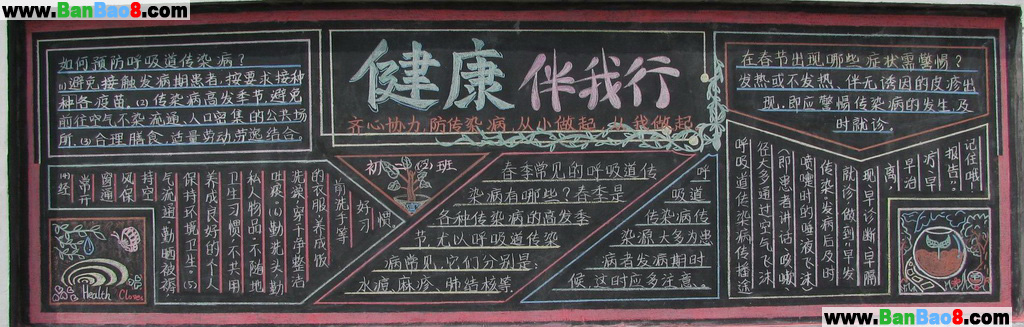 www.BanBao8.com
如何预防呼吸道传染病?
(1)避免接触发病期患者,按要求接种
种各疫苗。(2)传染病高发季节,避免
前往空气不流通、人口留集的公共场
所。(3)合理膳食,适量劳动劳逸结合。
健康
伴我行
齐心协力,防传染病,从小做起
我做起
在春节出现哪些症状需警惕?
发热或不发热、伴无诱因的皮疹出
现,即应警惕传染病的发生,及
时就诊。
常开
窗通
风保
持空
气流通,勤晒被褥
保持环境卫生。(5)
养成良好的个人
卫生习惯,不共用
私人物品,不随地
吐痰。(6)勤洗头、勤
洗澡、穿干净整洁
的衣服,养成饭
前洗手等
好习
惯。
初
班
春季常见的呼吸道传
染病有哪些?春季是
各种传染病的高发季
节尤以呼吸道传染
病常见,它们分别是:
水痘、麻疹、肺结核等
呼
吸道
传染病传
染源大多为患
病者发病期时
候,这时应多注意。
呼吸道传染病传播途
径大多通过空气飞沫
即患者讲话、咳嗽、
喷嚏时的唾液飞沫
传染,发病后及时
就诊,做到“早发
现、早诊断、早隔
离、
早治
疗、早
报告”。
记住哦!
Health
www.BanBao8.com